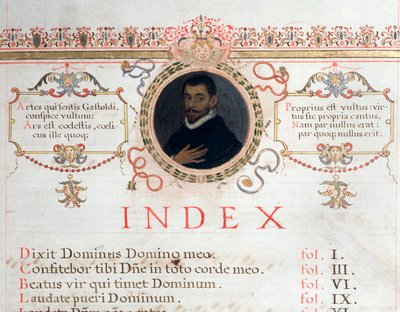 Artes qui sentis Gastoldi,
conspice vultum:
Ars est coelestis, coelis-
cus ille quoq;
Proprius est vultus: vir-
tus sic propria cantus,
Nam par nullus erat:
par quoq; nullus erit.
INDEX
Dixit Dominus Domino meo. fol. I.
Confitebor tibi Dñe in toto corde meo. fol. III.
Beatus vir qui timet Dominum. fol. VI.
Laudate pueri Dominum. fol. IX.
fol. XI.